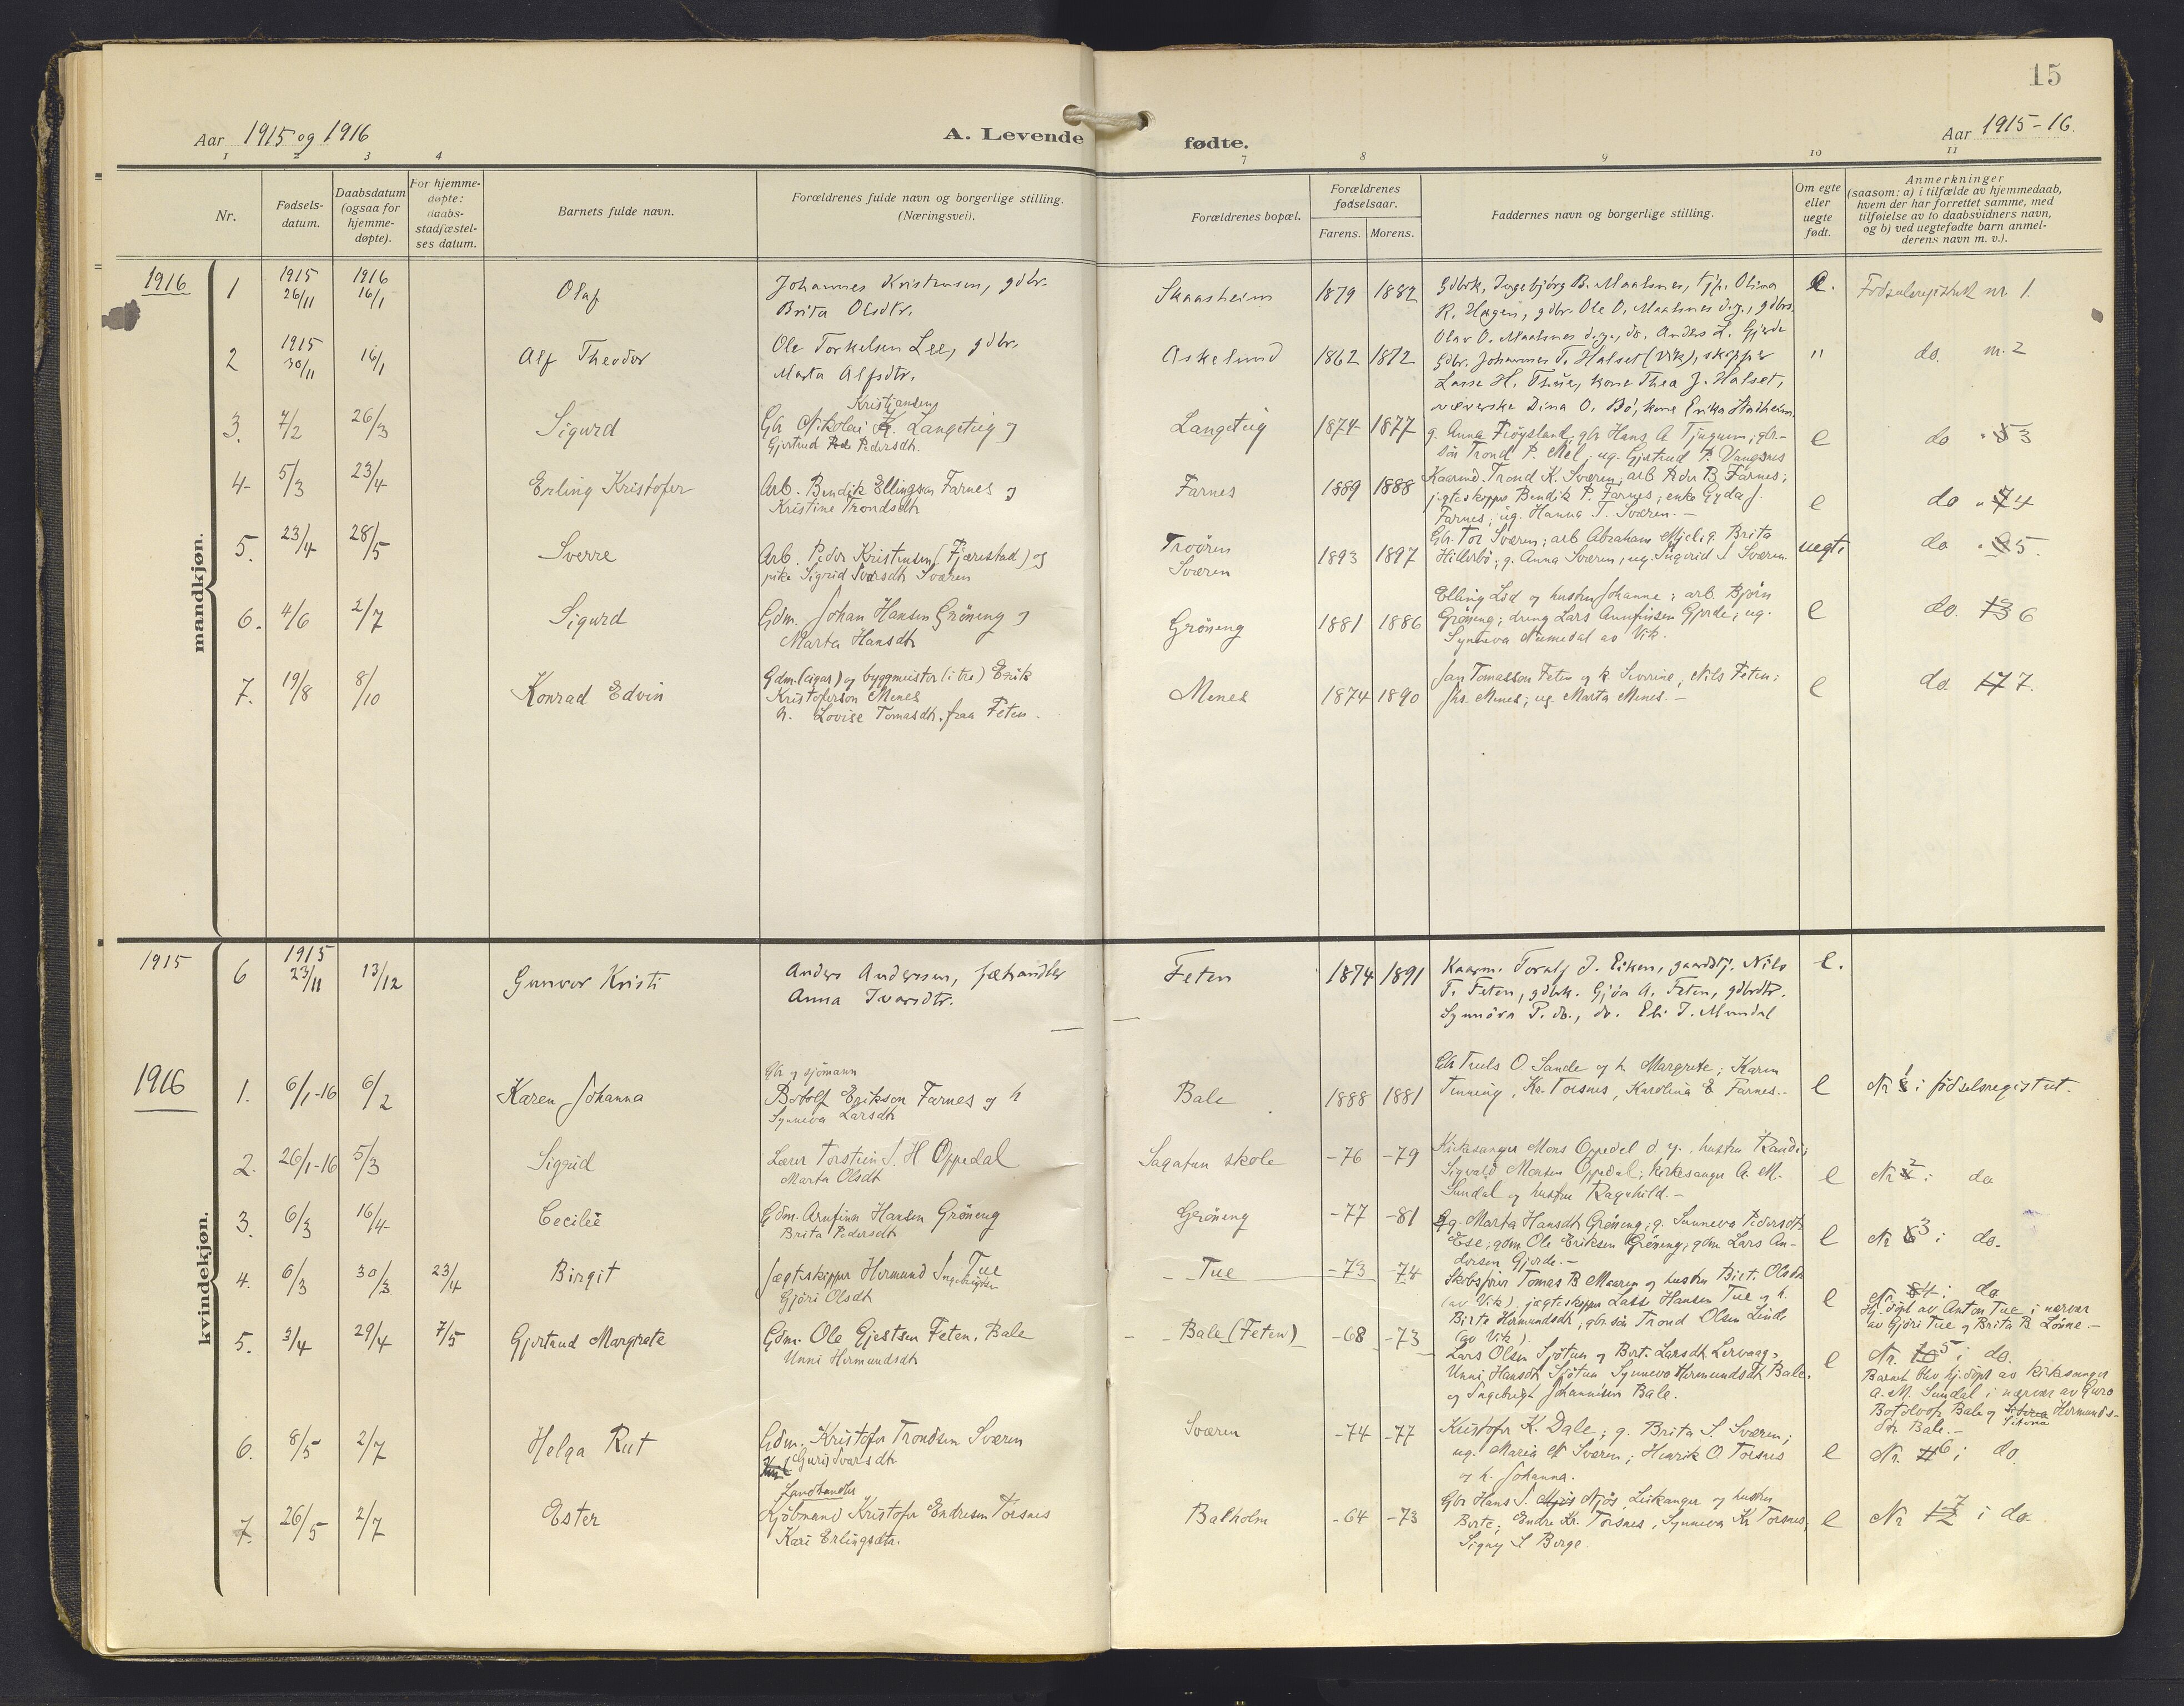 15
Aar 1915 og 1916
A. Levende fødte.
Aar 1915-16.
1 2 3 4 7 8 9 10 11
Nr.
Fødsels-
datum.
Daabsdatum
(ogsaa for
hjemme-
døpte).
For hjemme-
døpte:
daabs-
stadfæstel-
ses datum.
Barnets fulde navn.
Forældrenes fulde navn og borgerlige stilling.
(Næringsvei).
Forældrenes bopæl.
Forældrenes
fødselsaar.
Farens. Morens.
Faddernes navn og borgerlige stilling.
Om egte
eller
uegte
født.
Anmerkninger
(saasom: a) i tilfælde av hjemmedaab,
hvem der har forrettet samme, med
tilføielse av to daabsvidners navn,
og b) ved uegtefødte barn anmel-
derens navn m. v.).
mandkjøn.
1916
1 1915 26/11 1916 16/1 Olaf
Johannes Kristensen, gdbr.
Brita Olsdtr.
Skaasheim 1879 1882
Gdbrk. Ingebjörg B. Maalsnes, tjp. Olina
K. Hagen, gdbr. Ole O. Maalsnes d.y., gdbrs.
Olav O. Maalsnes d.y., do. Anders L. Gjerde
e. Födselsregistret nr. 1.
2 1915 30/11 16/1 Alf Theodor
Ole Torkelsen Lee, gdbr.
Marta Alfsdtr.
Askelund 1862 1872
Gdbr. Johannes T. Halset (Vik), skipper
Lasse H. Thue, kone Thea J. Halset,
væverske Dina O. Bö, kone Erika Stadheim.
" do. nr. 2
3. 7/2 26/3 Sigurd
Kristiansen
Gbr Nikolai K. Langeteig og
Gjertrud Pedersdtr.
Langeteig 1874 1877
g. Anna Fröysland, gbr Hans A Tjugum; gbr-
sön Trond P. Mel; ug. Gjertrud P. Vangsnes
e do " 3
4. 5/3 23/4 Erling Kristofer
Arb. Bendik Ellingsen Farnes og
Kristine Trondsdtr
Farnes 1889 1888
Kaarmd. Trond K. Sværen; arb Peder B. Farnes;
jægteskipper Bendik P. Farnes; enke Gyda J.
Farnes; ug. Hanna T. Sværen. -
e do " 4
5. 23/4 28/5 Sverre
Arb. Peder Kristensen (Fjærestad) og
pike Sigrid Ivarsdtr Sværen
Sværen 1893 1897
Gbr. Tor Sværen; arb Abraham Mjel; g. Brita
Hillerbö; g. Anna Sværen; ug. Ingerid I Sværen.
uegte do " 5.
6. 4/6 2/7 Sigurd
Gdm. Johan Hansen Gröneng og
Marta Hansdtr
Gröneng 1881 1886
Elling Lid og hustru Johanne; arb Björn
Gröneng; dreng Lars Arnfinsen Gjerde; ug.
Synneva Nummedal av Vik.
e do. 6
7. 19/8 8/10 Konrad Edvin
Gdm. (eigar) og byggmeister (i tre) Eirik
Kristoferson Menes
h. Lovise Tomasdtr. fraa Feten.
Menes 1874 1890
Jan Tomasson Feten og k. Severine; Nils Feten;
Jhs. Menes; ug. Marta Menes. -
e do. 7.
kvindekjøn.
1915
6 1915 23/11 13/12 Gunvor Kristi
Anders Anderssen, fæhandler
Anna Ivarsdtr.
Feten 1874 1891
Kaarm. Toralf J. Eiken, gaardbr. Nils
T. Feten, gdbrk. Gjöa A. Feten, gdbrdtr.
Synnöva P. do., do. Eli J. Mundal
e.
1916
1. 6/1-16 6/2 Karen Johanna
Gbr og sjömann
Botolf Eriksen Farnes og h
Synneva Larsdtr
Bale 1888 1881
Gbr Truls O. Sande og h. Margrete; Karen
Tenning, Kr. Torsnes, Karolina E Farnes. -
e Nr 1 i födselsregistret.
2. 26/1-16 5/3 Sigrid
Lærer Torstein S. H. Oppedal
Marta Olsdtr
Sagatun skole -76 -79
Kirkesanger Mons Oppedal d. y., hustru Randi;
Sigvald Monsen Oppedal; kirkesanger A. M.
Sundal og hustru Ragnhild. -
e Nr 2 i do
3. 6/3 16/4 Cecilie
Gdm. Arnfinn Hansen Gröneng
Brita Pedersdtr
Gröneng -77 -81
g. Marta Hansdtr Gröneng; g. Sunneva Pedersdtr
Ese; gdm. Ole Eriksen Gröneng; gdm Lars An-
dersen Gjerde. -
e Nr 3 i do.
4. 6/3 30/3 23/4 Birgit
Jægteskipper Hermund Ingebrigtsen Tue
Gjöri Olsdtr
Tue -73 -74
Skibsförer Tomas B Maaren og hustru Birti Olsdtr
(av Vik), jægteskipper Lasse Hansen Tue og h.
Birte Hermundsdtr, gbr. sön Trond Olsen Linde
(av Vik).
e Nr. 4 i do
Hj. döpt av Anton Tue i nærvær
av Gjöri Tue og Brita B Lönne -
5. 3/4 29/4 7/5 Gjertrud Margrete
Gdm. Ole Gjestsen Feten, Bale
Unni Hermundsdtr
Bale (Feten) -68 -73
Lars Olsen Sjötun og Bert. Larsdtr Lervaag,
Unni Hansdtr Sjötun Synneva Hermundsdtr Bale,
og Ingebrigt Johannesen Bale.
e Nr. 5 i do.
Barnet blev hj. döpt av kirkesanger
A. M. Sundal i nærvær av Guro
Botolvsdtr Bale og Hermunds-
dtr Bale. -
6. 8/5 2/7 Helga Rut
Gdm. Kristofer Trondsen Sværen
Guri Ivarsdtr
Sværen -74 -77
Kristofer K. Dale; g. Brita S. Sværen;
ug. Maria Sværen; Henrik O. Torsnes
og h. Johanna.
e Nr. 6 i do.
7. 26/5 2/7 Ester
Landhandler
Kjöbmand Kristofer Endresen Torsnes
Kari Erlingsdtr.
Balholm -64 -73
Gbr Hans S. Njøs, Leikanger og hustru
Berte; Endre Kr. Torsnes, Synneva Kr Torsnes,
Signy S Berge.
e Nr 7 i do.